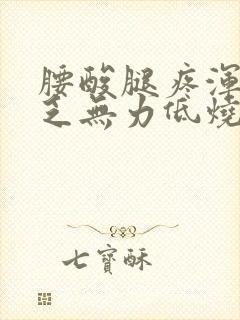 腰酸腿疼渾
乏無力低燒
七寶酥